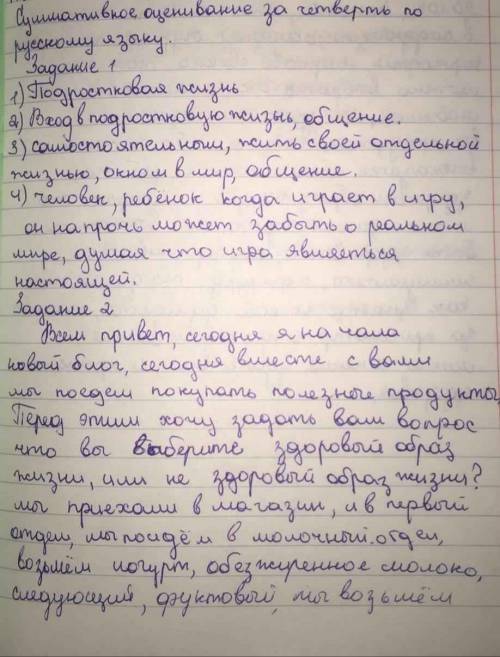 Суммативное оценивание за четверть по
русскому языку.
Задание 1
1) Подростковая жизнь
2) Вход в подростковую жизнь, общение.
3) самостоятельным, жить своей отдельной
жизнью, окном в мир, общение.
4) человек, ребёнок когда играет в игру,
он напрочь может забыть о реальном
мире, думая что игра являеться
настоящей.
Задание 2
Всем привет, сегодня я начала
новый блог, сегодня вместе с вами
мы поедем покупать полезные продукты,
Перед этим хочу задать вам вопрос
что вы выберите здоровый образ
жизни, или не здоровый образ жизни?
мы приехали в магазин, и в первый
отдел, мы пойдём в молочный отдел,
возьмём йогурт, обезжиренное молоко,
следующий, фруктовый, мы возьмём